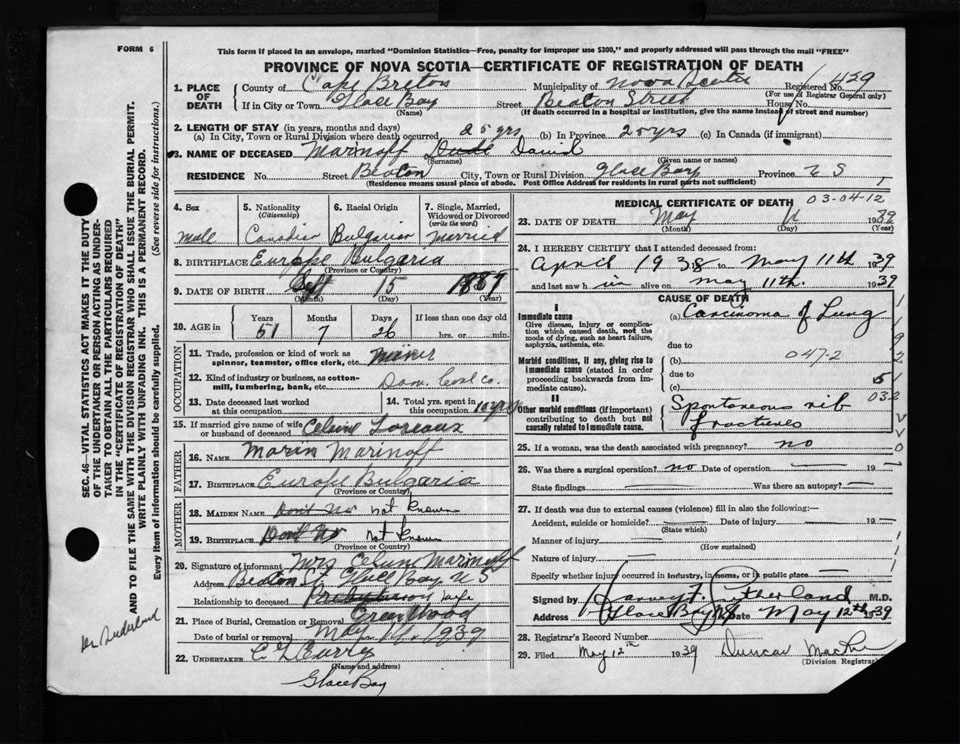 FORM 6
This form if placed in an envelope, marked "Dominion Statistics—Free, penalty for improper use $300," and properly addressed will pass through the mail "FREE"
PROVINCE OF NOVA SCOTIA—CERTIFICATE OF REGISTRATION OF DEATH
1. PLACE OF DEATH
County of Cape Breton Municipality of Nova Scotia Registered No. 429
(For use of Registrar General only)
If in City or Town Glace Bay Street Beaton Street House No.
(Name) (If death occurred in a hospital or institution, give the name instead of street and number)
2. LENGTH OF STAY (in years, months and days)
(a) In City, Town or Rural Division where death occurred 25 yrs (b) In Province 20 yrs (c) In Canada (if immigrant)
3. NAME OF DECEASED Marinoff Daniel
(Surname) (Given name or names)
RESIDENCE No. Street Beaton City, Town or Rural Division Glace Bay Province N S
(Residence means usual place of abode. Post Office Address for residents in rural parts not sufficient)
4. Sex 5. Nationality (Citizenship) 6. Racial Origin 7. Single, Married, Widowed or Divorced (write the word)
Male Canadian Bulgarian Married
8. BIRTHPLACE Europe Bulgaria
(Province or Country)
9. DATE OF BIRTH Sept 15 1887
(Month) (Day) (Year)
10. AGE in Years Months Days If less than one day old
51 7 26 hrs. or min.
OCCUPATION
11. Trade, profession or kind of work as spinner, teamster, office clerk, etc. Miner
12. Kind of industry or business, as cotton-mill, lumbering, bank, etc. Dom. Coal Co.
13. Date deceased last worked at this occupation
14. Total yrs. spent in this occupation 10 yrs
15. If married give name of wife or husband of deceased Celine Loreaux
FATHER
16. NAME Marin Marinoff
17. BIRTHPLACE Europe Bulgaria
(Province or Country)
MOTHER
18. MAIDEN NAME Don't No not known
19. BIRTHPLACE Don't No not known
(Province or Country)
20. Signature of informant Mrs Celine Marinoff
Address Beaton St Glace Bay N S
Relationship to deceased Presbyterian wife
21. Place of Burial, Cremation or Removal Greenwood
Date of burial or removal May 14 1939
22. UNDERTAKER E G Curry
(Name and address)
Glace Bay
MEDICAL CERTIFICATE OF DEATH 03-04-12
23. DATE OF DEATH May 11 1939
(Month) (Day) (Year)
24. I HEREBY CERTIFY that I attended deceased from:
April 1938 to May 11th 1939
and last saw him alive on May 11th. 1939
CAUSE OF DEATH
I
Immediate cause
Give disease, injury or complication which caused death, not the mode of dying, such as heart failure, asphyxia, asthenia, etc.
(a) Carcinoma of Lung
due to
Morbid conditions, if any, giving rise to immediate cause (stated in order proceeding backwards from immediate cause).
(b) 047-2
due to
(c) 5
II
Other morbid conditions (if important) contributing to death but not causally related to immediate cause.
Spontaneous rib fractures
25. If a woman, was the death associated with pregnancy? no
26. Was there a surgical operation? no Date of operation 19
State findings Was there an autopsy?
27. If death was due to external causes (violence) fill in also the following:—
Accident, suicide or homicide? Date of injury 19
(State which)
Manner of injury
(How sustained)
Nature of injury
Specify whether injury occurred in industry, in home, or in public place
Signed by Sutherland M.D.
Address Glace Bay NS Date May 12th 1939
28. Registrar's Record Number
29. Filed May 12th 1939 Duncan
(Division Registrar)
SEC. 46—VITAL STATISTICS ACT MAKES IT THE DUTY
OF THE UNDERTAKER OR PERSON ACTING AS UNDER-
TAKER TO OBTAIN ALL THE PARTICULARS REQUIRED
IN THE "CERTIFICATE OF REGISTRATION OF DEATH"
AND TO FILE THE SAME WITH THE DIVISION REGISTRAR WHO SHALL ISSUE THE BURIAL PERMIT.
WRITE PLAINLY WITH UNFADING INK. THIS IS A PERMANENT RECORD.
Every item of information should be carefully supplied. (See reverse side for instructions.)